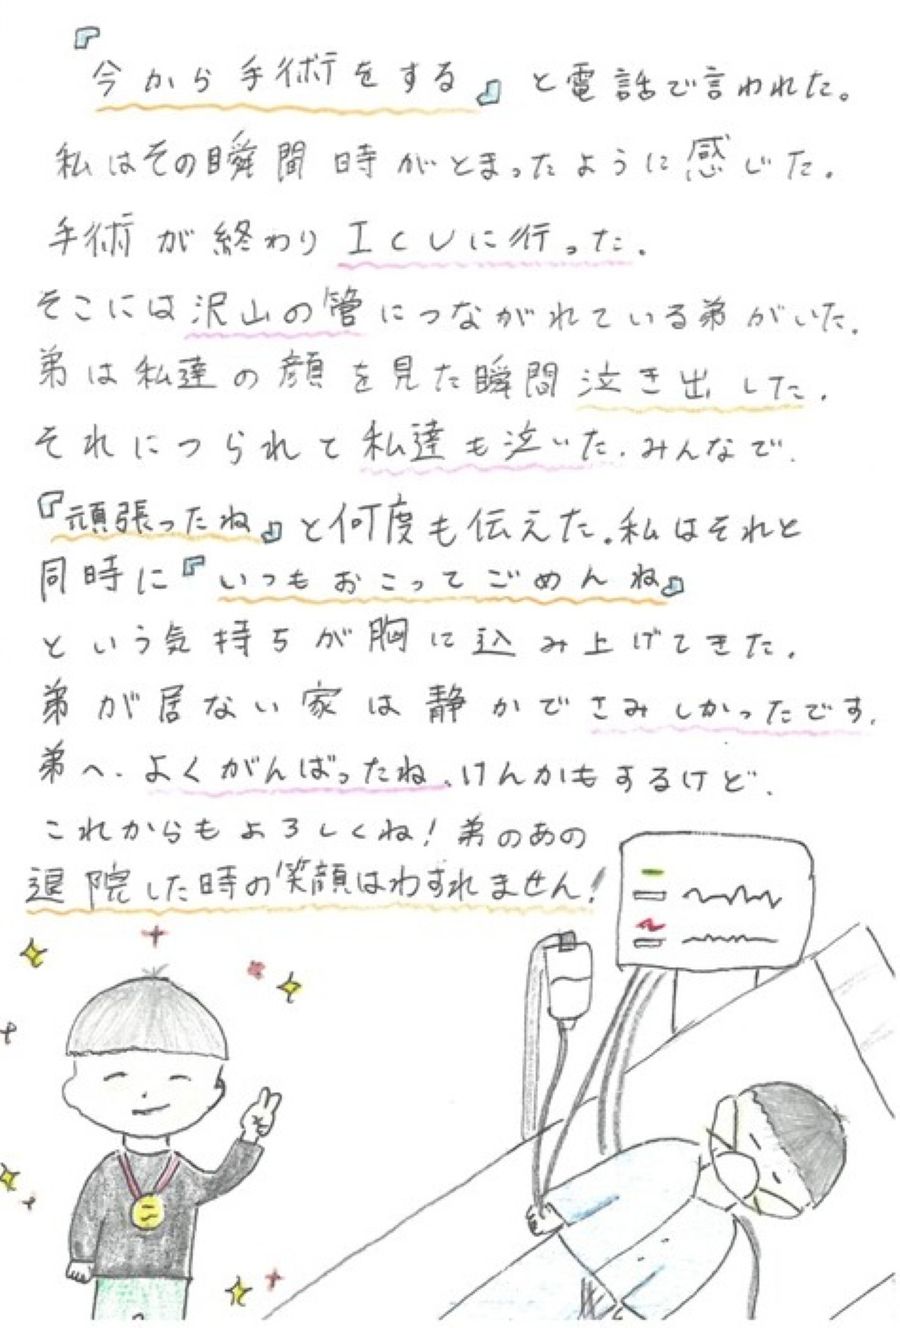 『今から手術をする』と電話で言われた。
私はその瞬間時がとまったように感じた。
手術が終わりICUに行った。
そこには沢山の管につながれている弟がいた。
弟は私達の顔を見た瞬間泣き出した。
それにつられて私達も泣いた、みんなで、
『頑張ったね』と何度も伝えた。私はそれと
同時に『いつもおこってごめんね』
という気持ちが胸に込み上げてきた。
弟が居ない家は静かでさみしかったです。
弟へ、よくがんばったね、けんかもするけど、
これからもよろしくね!弟のあの
退院した時の笑顔はわすれません!